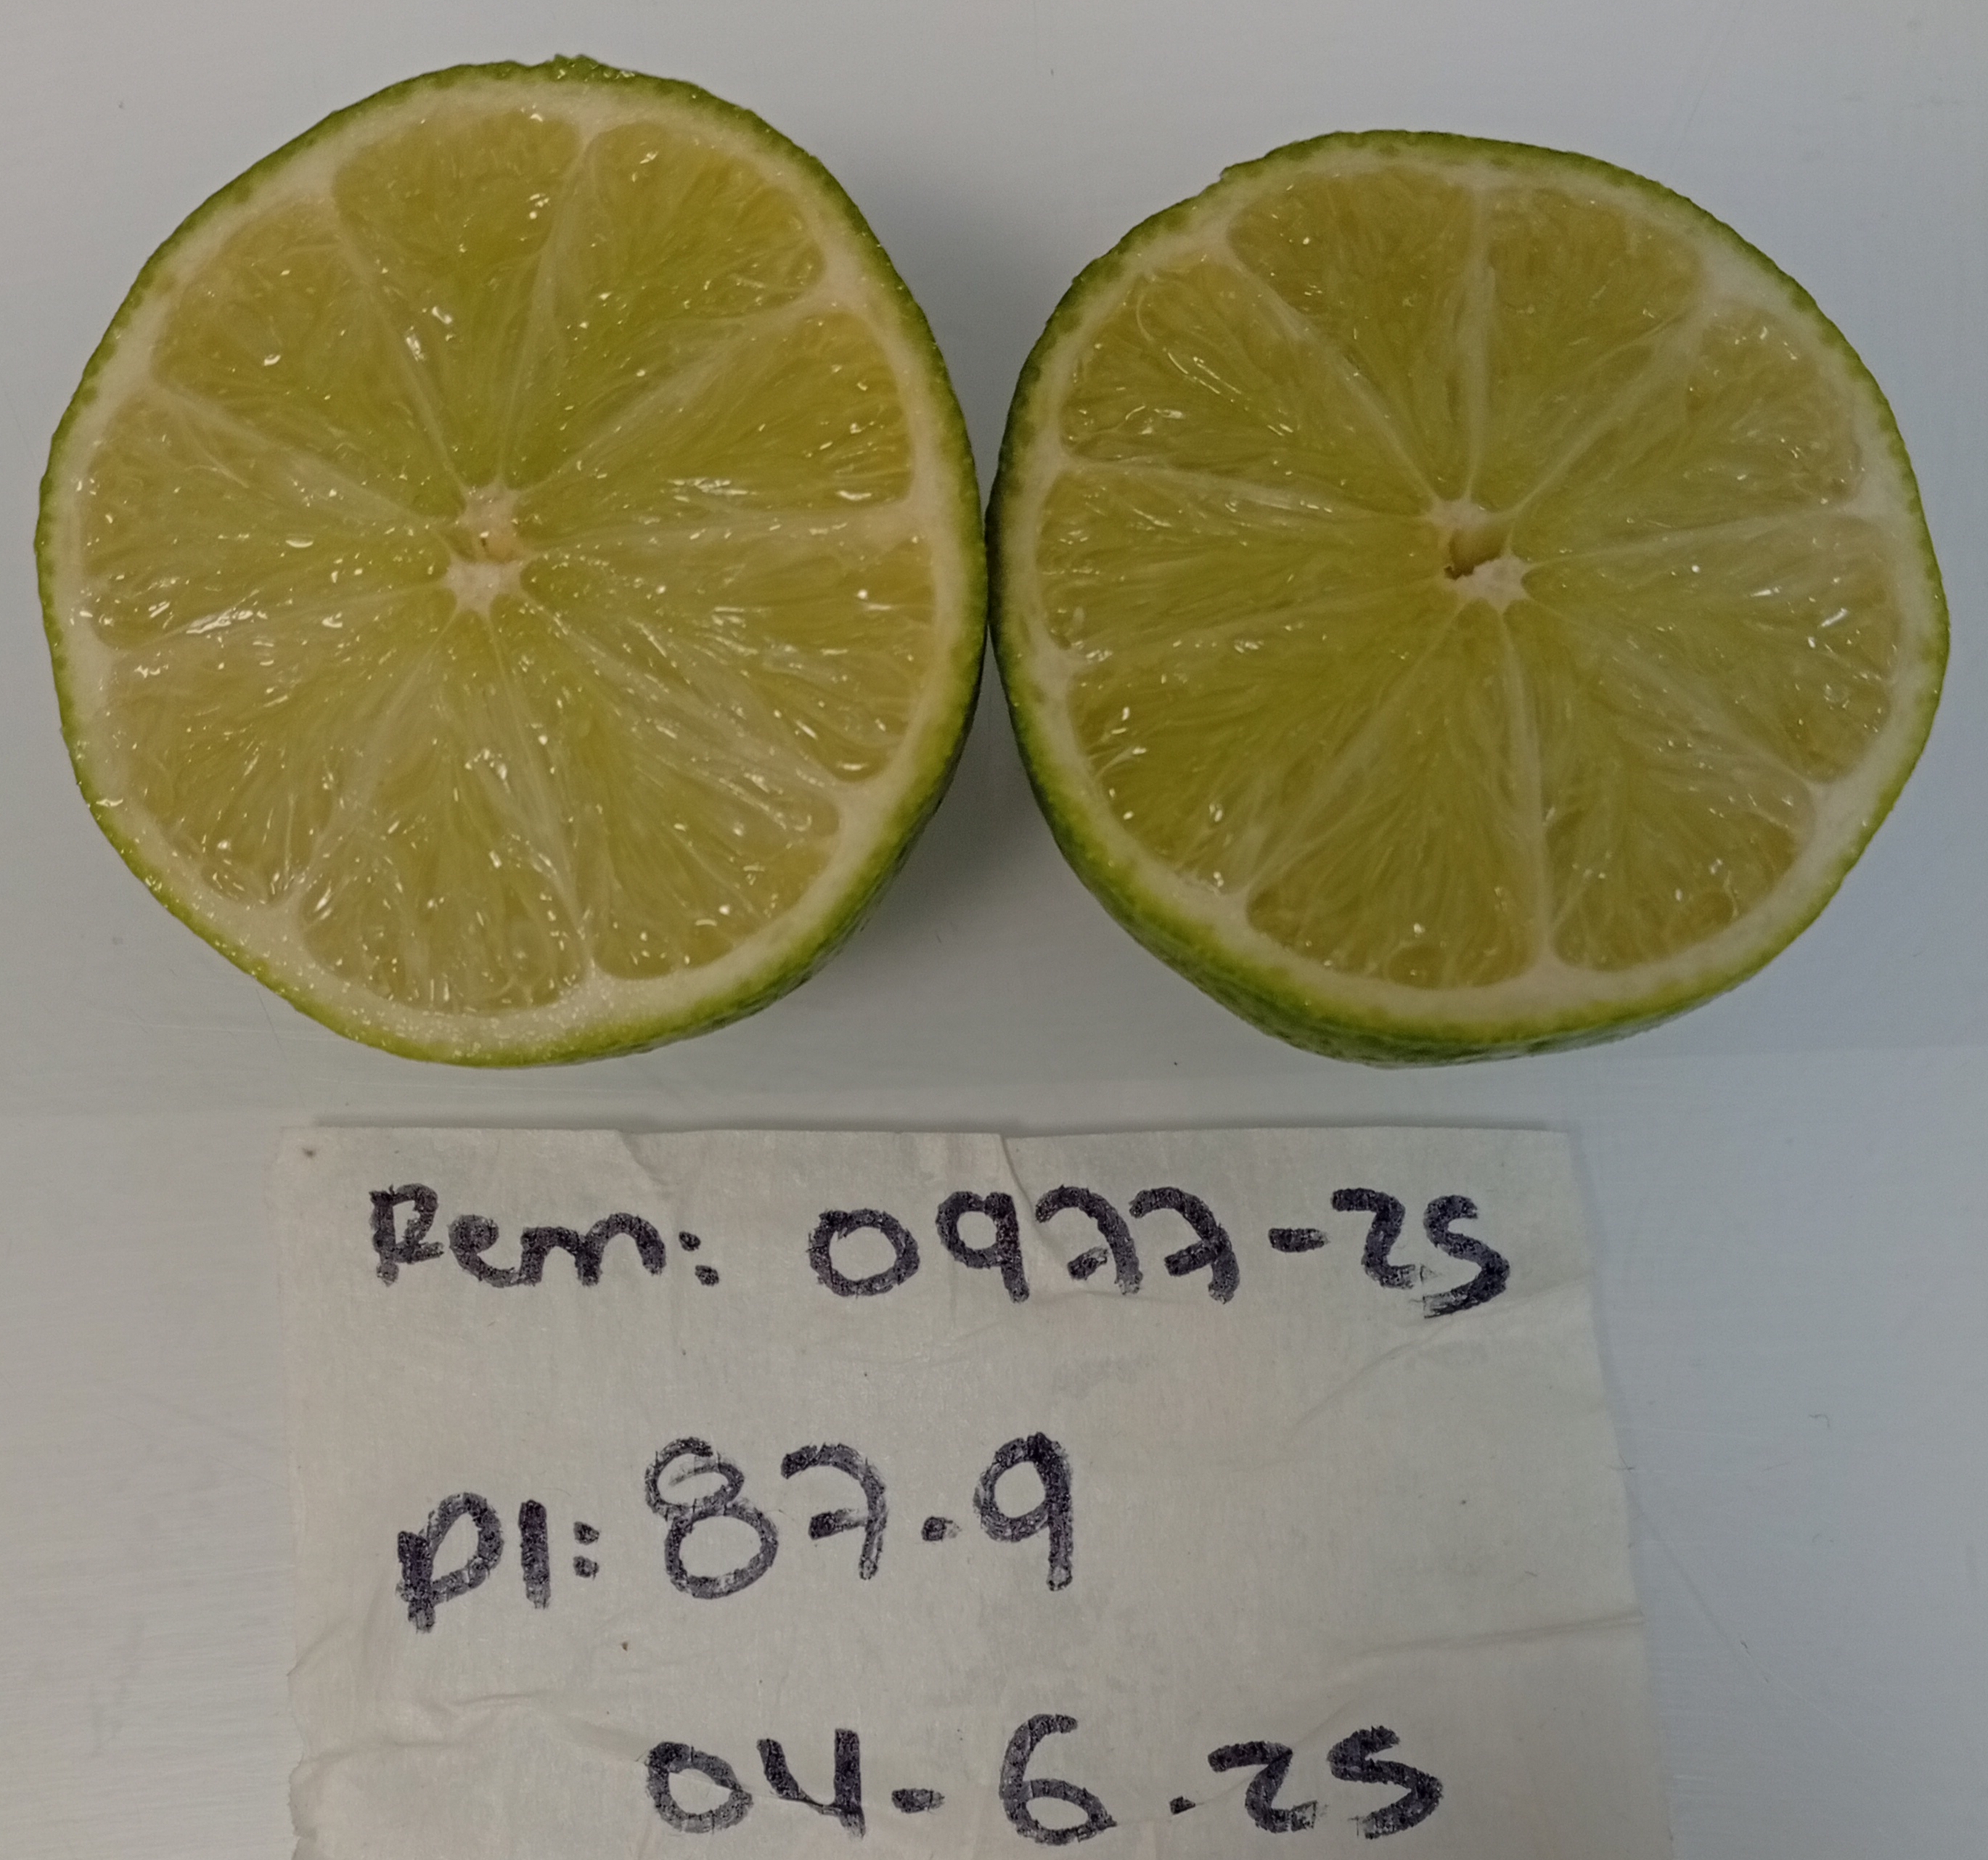 Rem: 0977-25
P1: 87.9
04-6.25